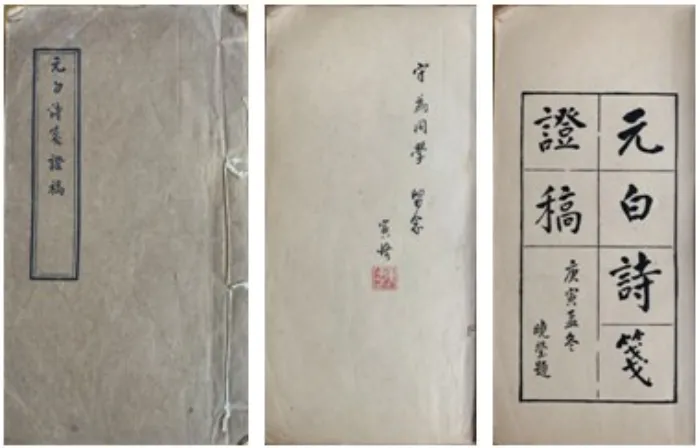 元白詩箋證稿
守為同學 留念
寅恪
元白詩箋
證稿
庚寅孟冬
曉瑩題